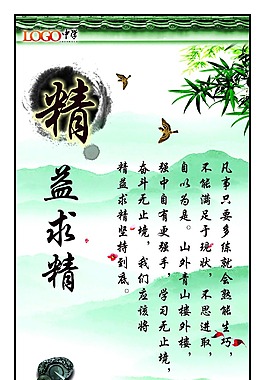 LOGO中学
精
益求精
凡事只要多练就会熟能生巧，
不能满足于现状，不思进取，
自以为是。山外青山楼外楼，
强中自有更强手，学习无止境，
奋斗无止境，我们应该将
精益求精坚持到底。